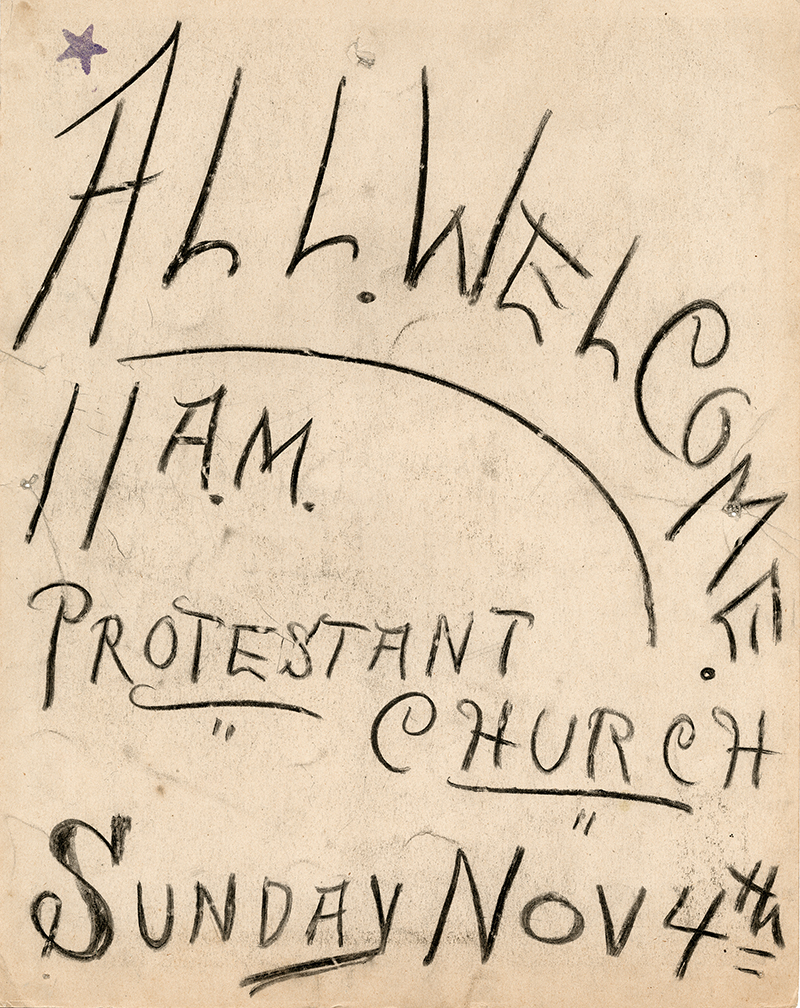 ALL. WELCOME.
11 A.M.
PROTESTANT
CHURCH
SUNDAY NOV 4th